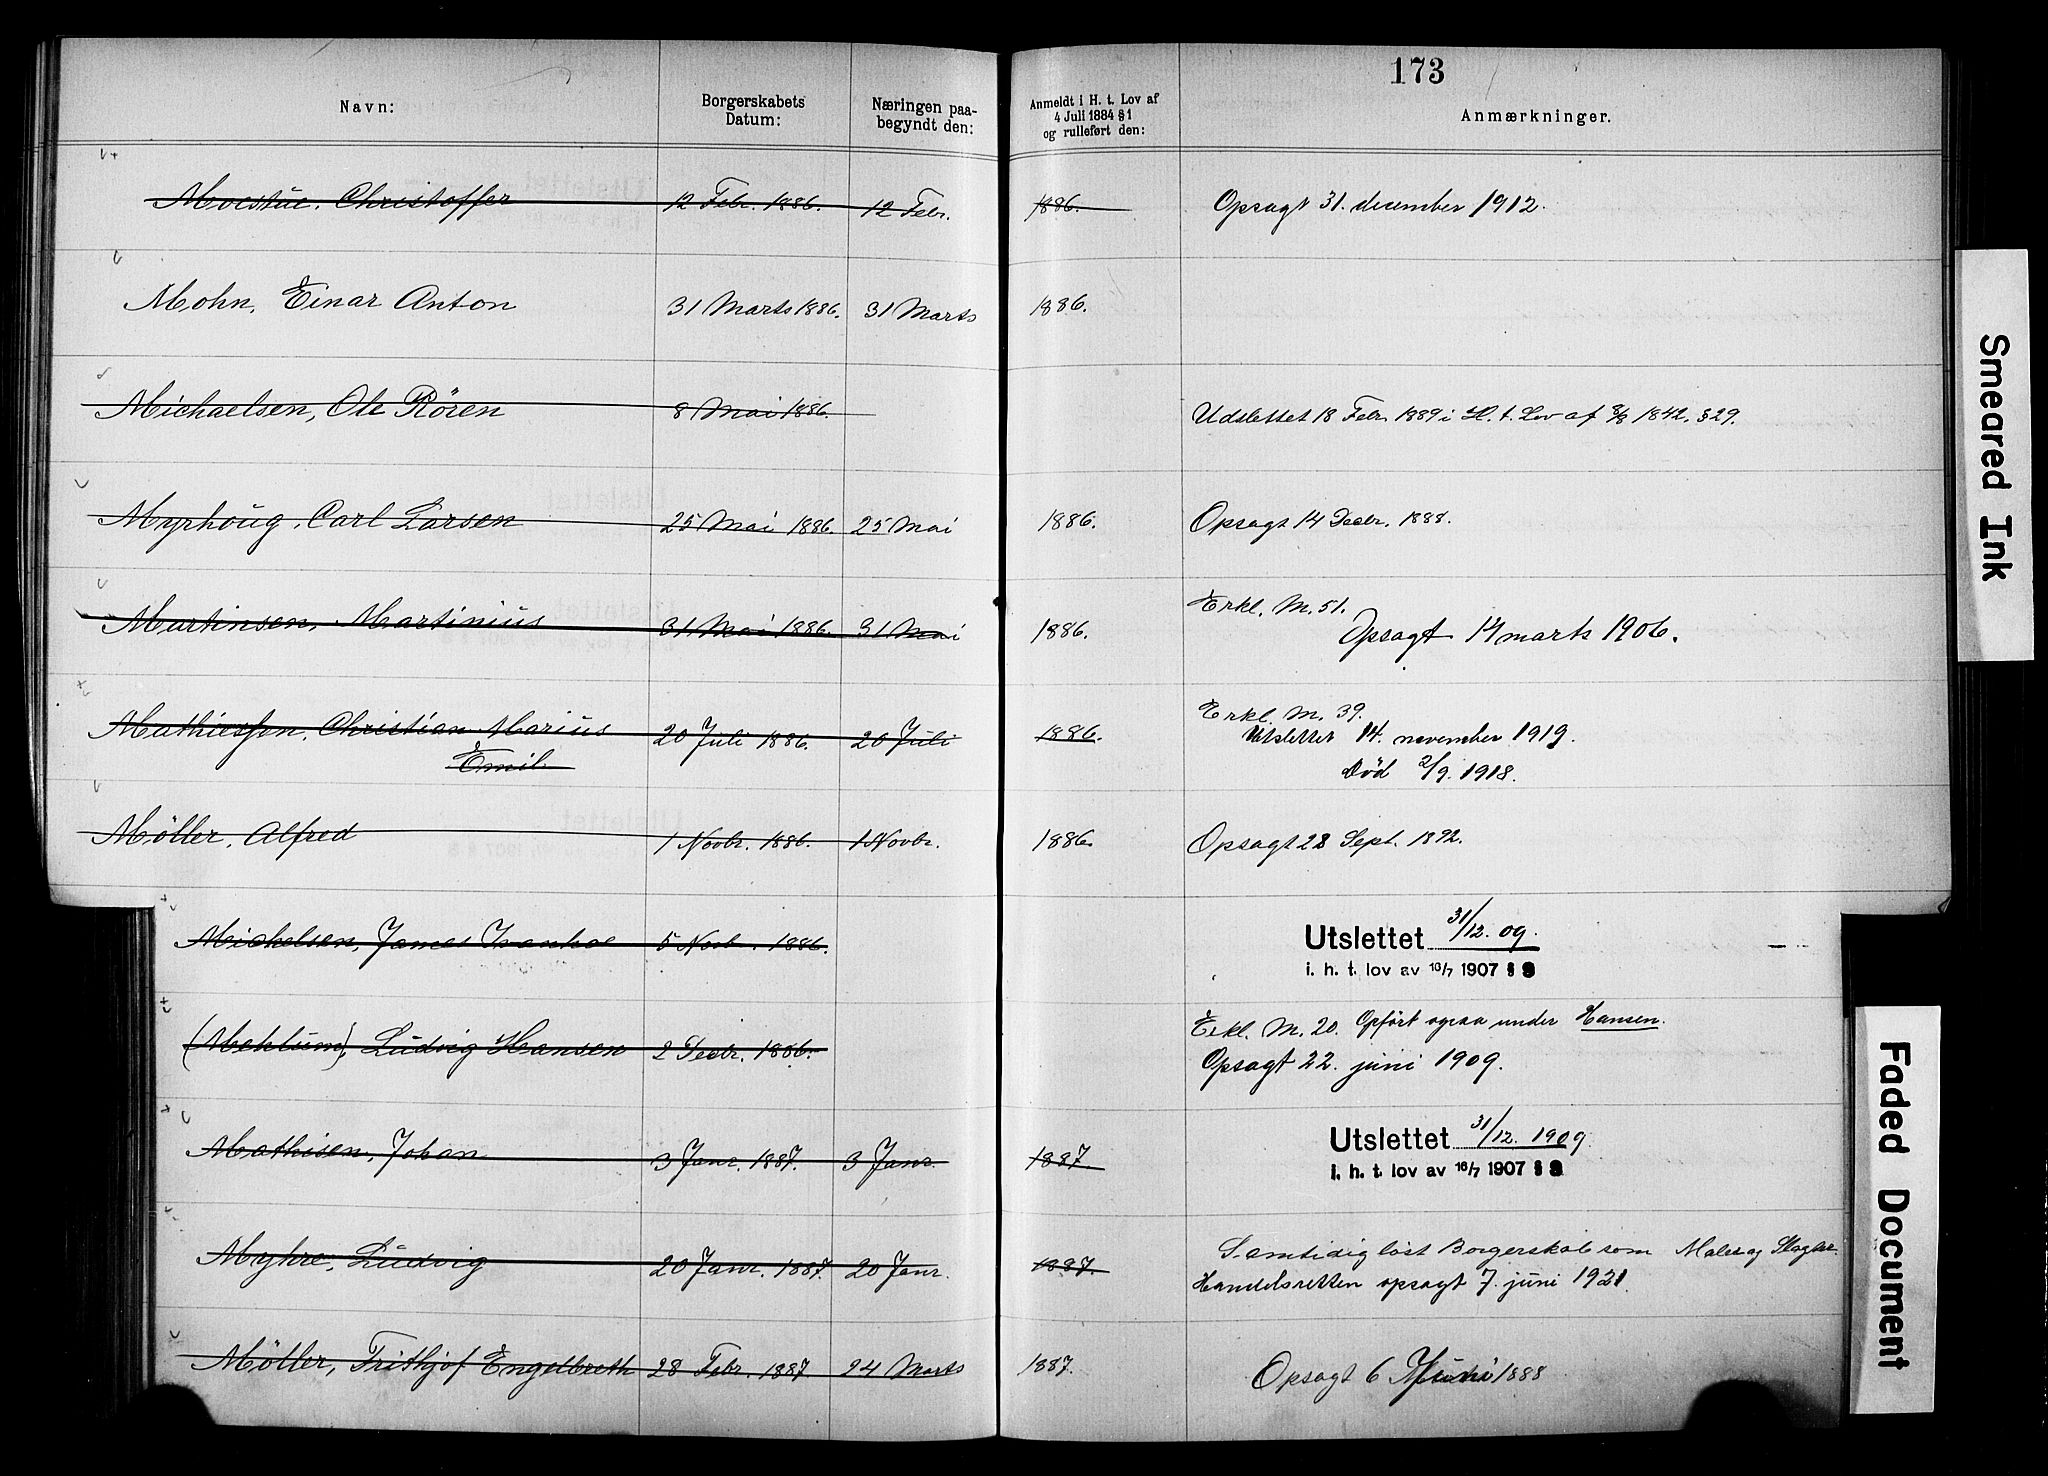 173
Navn: Borgerskabets Datum: Næringen paabegyndt den: Anmeldt i H. t. Lov af 4 Juli 1884 §1 og rulleført den: Anmærkninger.
Moestue, Christoffer 12 Febr. 1886. 12 Febr. 1886. Opsagt 31. december 1912.
Mohn, Einar Anton 31 Marts 1886. 31 Marts 1886.
Michaelsen, Ole Rören 8 Mai 1886. Udslettet 18 Febr. 1889 i H. t. Lov af 8/8 1842. §29.
Myrhoug, Carl Larsen 25 Mai 1886. 25 Mai 1886. Opsagt 14 Decbr. 1888.
Martinsen, Martinius 31 Mai 1886. 31 Mai 1886. Erkl. M. 51.
Opsagt 14 marts 1906.
Mathiessen, Christian Marius 20 Juli 1886. 20 Juli 1886. Erkl. M. 39.
Utslettet 14. november 1919.
Emil Död 2/9. 1918.
Möller, Alfred 1 Novbr. 1886. 1 Novbr. 1886. Opsagt 28 Sept. 1892.
Mickelsen, James Ivanhoe 5 Novb. 1886. Utslettet 31/12. 09.
i. h. t. lov av 16/7 1907 §
(Meklum), Ludvig Hansen 2 Decbr. 1886. Erkl. M. 20. Opfört ogsaa under Hansen.
Opsagt 22. juni 1909.
Mathisen, Johan 3 Janr. 1887. 3 Janr. 1887. Utslettet 31/12. 1909.
i. h. t. lov av 16/7 1907 §
Myhre, Ludvig 20 Janr. 1887. 20 Janr. 1887. Samtidig löst Borgerskab som Maler og
Handelsretten opsagt 7. juni 1921.
Möller, Frithjof Engelbreth 28 Febr. 1887. 24 Marts 1887. Opsagt 6 1888
Smeared Ink
Faded Document